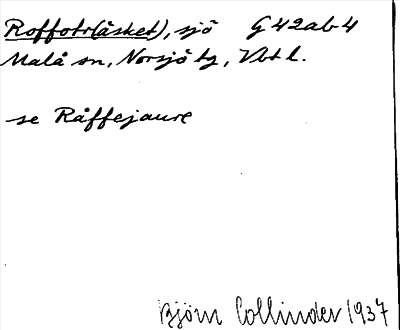 Roffotr(äsket), sjö G42ab4
Malå sn, Norsjö tg, Vbtl.
se Råffejaure
Björn Collinder 1937